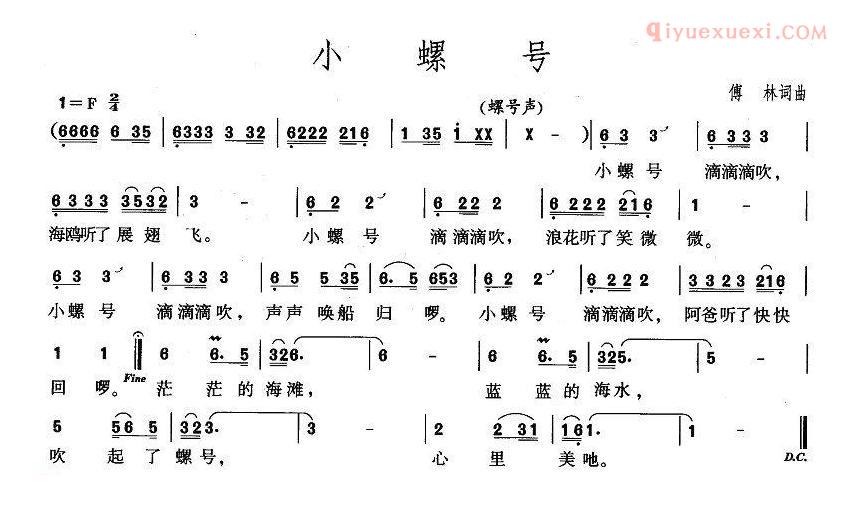 qiyuexuexi.com
小 螺 号
1=F 2/4
(螺号声)
傅 林词曲
(6666 6 35 | 6333 3 32 | 6222 216 | 1 35 i XX | X - ) | 6 3 3 | 6 3 3 3 |
小 螺 号 滴滴滴吹,
6 3 3 3 3532 | 3 - | 6 2 2 | 6 2 2 2 | 6 2 2 2 216 | 1 - |
海鸥听了展 翅 飞。 小 螺 号 滴滴滴吹, 浪花听了笑微 微。
6 3 3 | 6 3 3 3 | 6 5 5 35 | 6. 5 653 | 6 2 2 | 6 2 2 2 | 3 3 2 3 216 |
小 螺 号 滴滴滴吹, 声声 唤船 归 啰。 小 螺 号 滴滴滴吹, 阿爸听了快快
1 1 | 6 6. 5 | 326. | 6 - | 6 6. 5 | 325. | 5 - |
回 啰。 Fine 茫 茫 的 海 滩, 蓝 蓝 的 海 水,
5 56 5 | 323. | 3 - | 2 2 31 | 161. | 1 - |
吹 起 了 螺 号, 心 里 美 吔。 D.C.